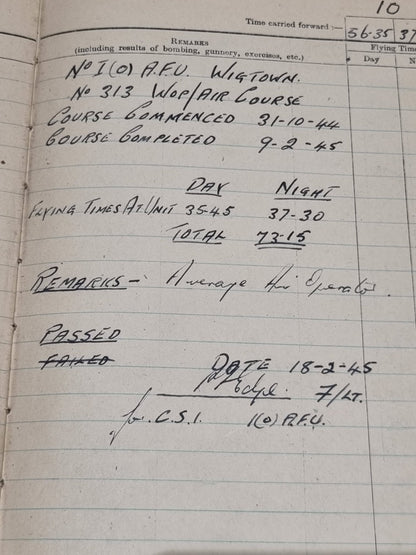 10
Time carried forward :—
56·35 37
REMARKS
(including results of bombing, gunnery, exercises, etc.)
Flying Time
Day N
No I (O) A.F.U. WIGTOWN.
No 313 WOP/AIR COURSE
COURSE COMMENCED 31-10-44
COURSE COMPLETED 9-2-45
DAY NIGHT
FLYING TIMES AT UNIT 35-45 37-30
TOTAL 73-15
REMARKS:- Average Air Operator.
PASSED
FAILED
DATE 18-2-45
F/LT.
for C.S.I. I(O) A.F.U.